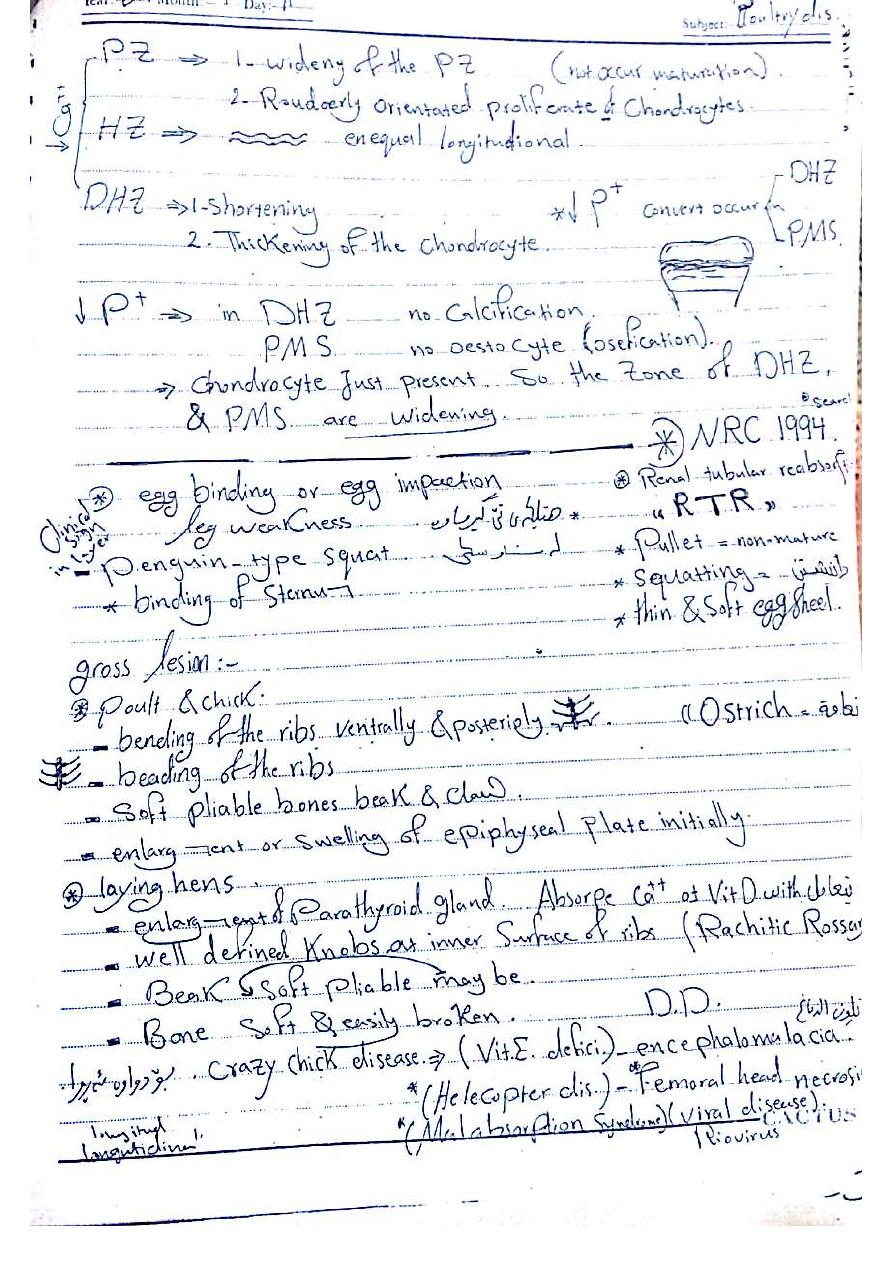 Month:- Day:-
Subject: Poultry dis.
Fig
PZ ⇒ 1- wideny of the PZ (not occur maturation).
2- Roudoerly orientated proliferate of Chondrocytes.
HZ ⇒ enequal longitudional.
DHZ ⇒ 1- Shortening
2. Thickening of the chondrocyte.
*↓ P+ convert occur in DHZ
PMS.
↓ P+ ⇒ in DHZ no Calcification.
PMS no Oestocyte (osefication).
⇒ Chondrocyte Just present. So the Zone of DHZ,
& PMS are widening.
search
* NRC 1994.
Clinical sign in layer
* egg binding or egg impaction
leg weakness
- Penguin-type squat
* binding of Sternu
* Renal tubular reabsorti
"RTR"
* Pullet = non-mature
* Squatting = دانیشتن
* thin & Soft egg sheel.
gross lesion :-
* Poult & chick.
- bending of the ribs ventrally & posteriply.
((Ostrich = نعامة
- beading of the ribs
- Soft pliable bones beak & claw.
- enlarg ent or swelling of epiphyseal plate initially.
* laying hens.
- enlarg ent of Parathyroid gland. Absorpe Ca++ at Vit D with
- well defined Knobs as inner Surface of ribs (Rachitic Rossar
- Beak Soft pliable may be.
- Bone Soft & easily broken.
D.D.
. Crazy chick disease. ⇒ (Vit E. defici.) - encephalomalacia..
*(Helecopter dis.) - *Femoral head necrosi
*(Malabsorption Syndrome) (viral disease).
Riovirus
CACTUS
longitud
longutidinal